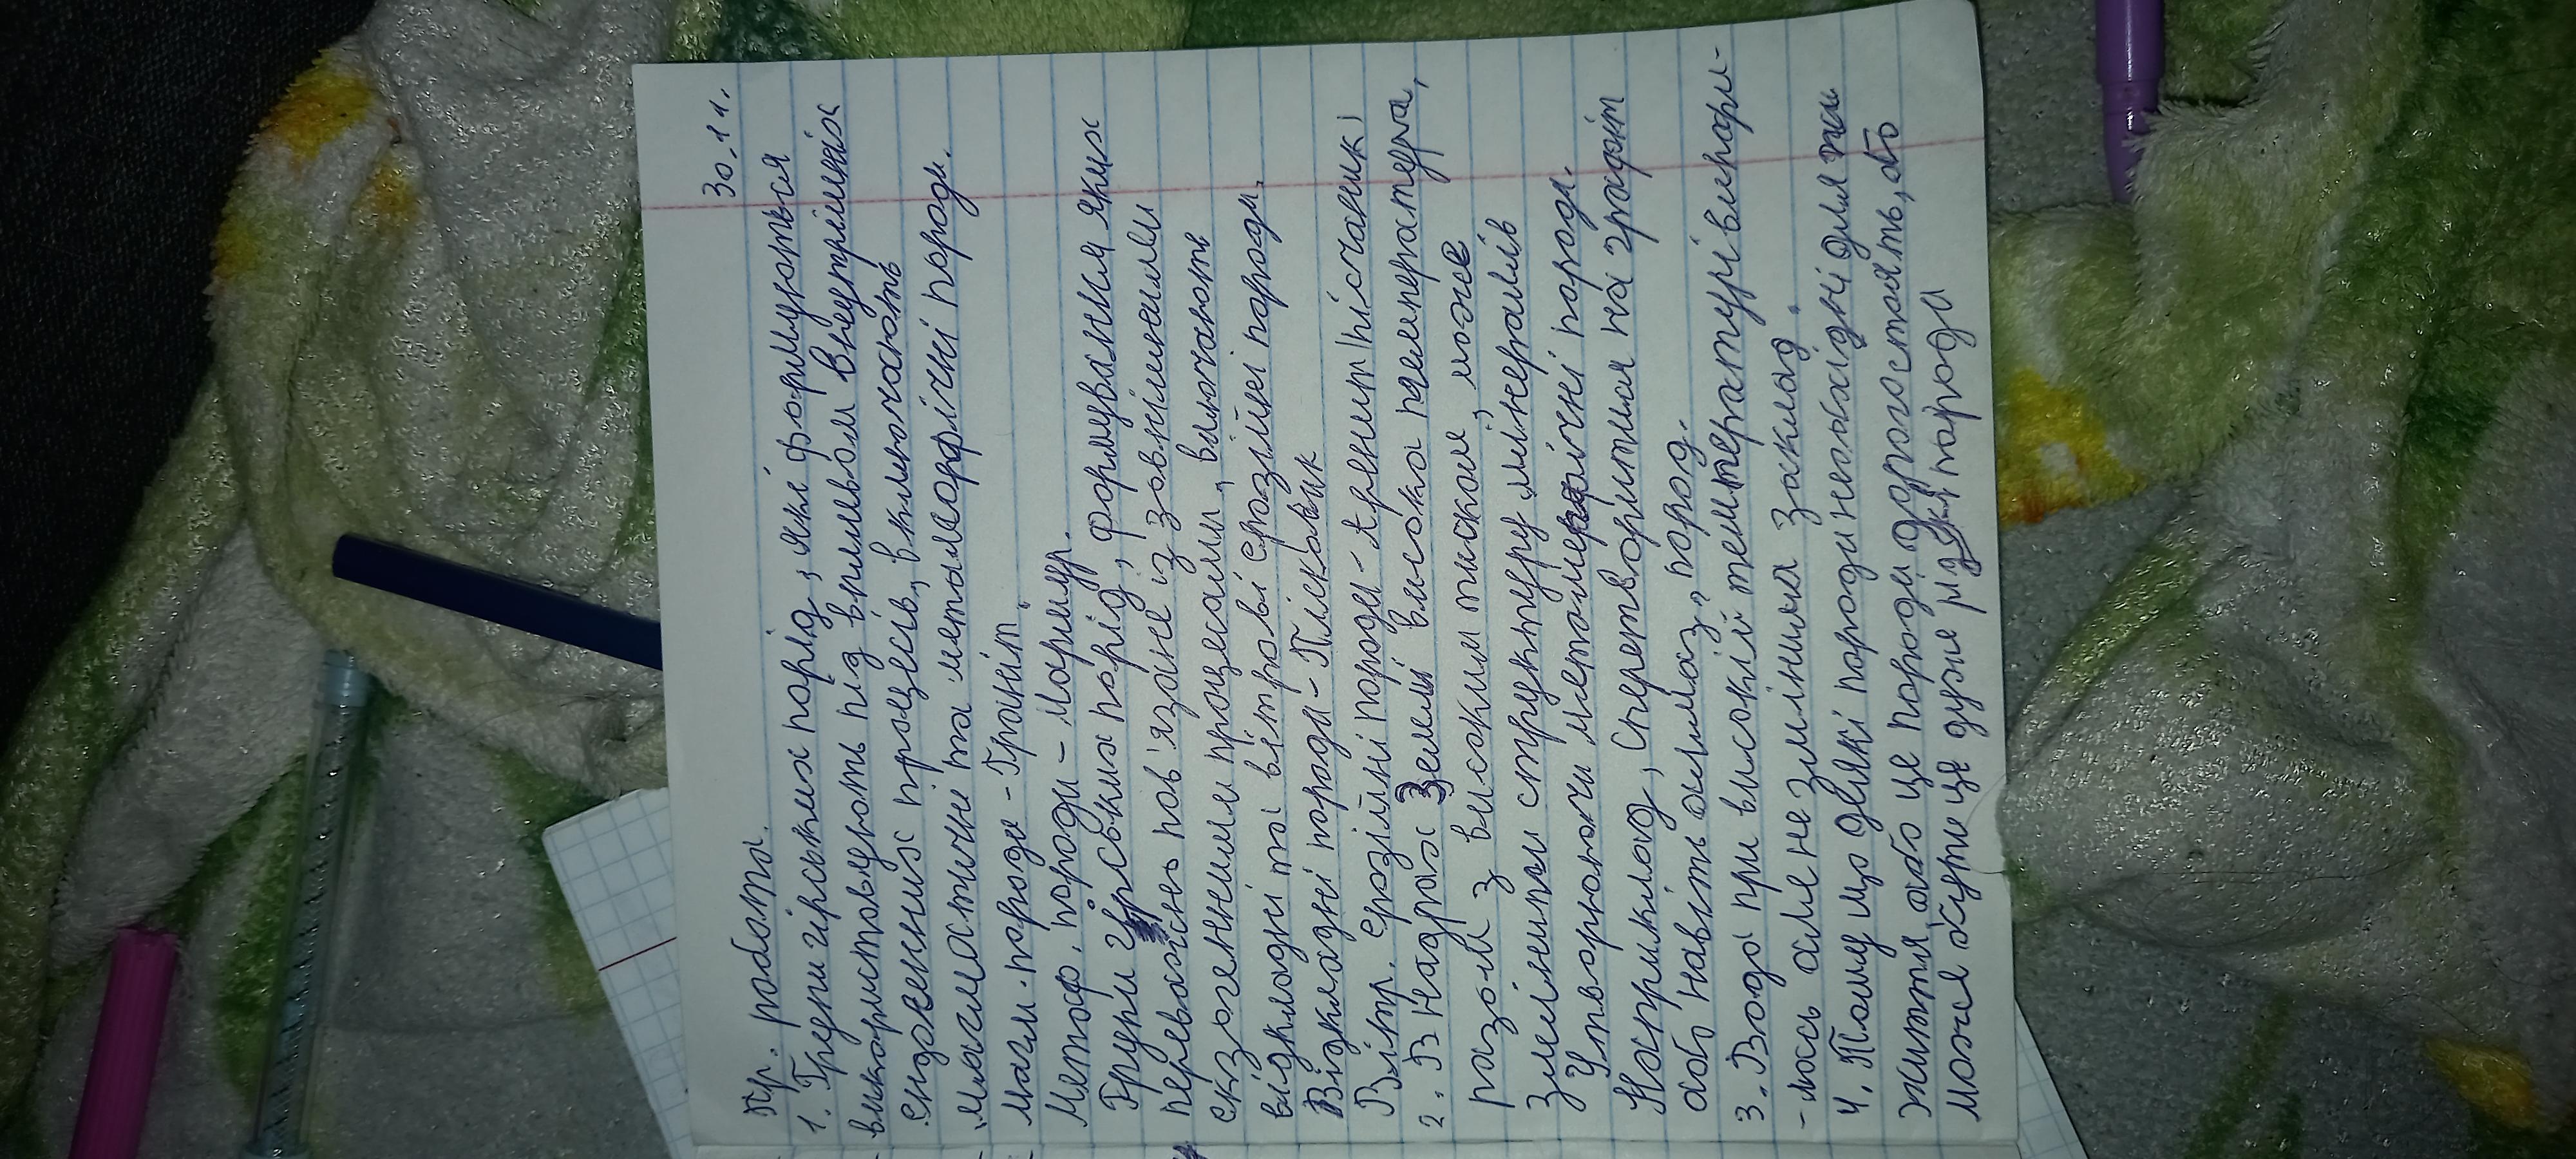 30.11.
Пр. робота.
1. Групи гірських порід, які формуються
використовують під впливом внутрішніх
ендогенних процесів, включають
магмастичні та метаморфічні породи.
Магм. породи - Граніт.
Метаф. породи - Мармур.
Групи гірських порід, формування яких
переважно пов'язане із зовнішніми
екзогенними процесами, включають
відкладні та вітрові ерозійні породи.
Відкладні породи - Пісковик
Вітр. ерозійні породи - Аренит (пісчаник)
2. В надрах Землі висока температура,
разом з високим тиском, може
змінити структуру мінералів
Утворюючи метаморфічні породи.
Наприклад, перетворитися на графіт
або навіть алмаз, пород.
3. Вода при високій температурі випарл-
-лась але не змінила заклад.
4. Тому що деякі породи необхідні для
життя або це породи дорогостоять, або
може бути це дуже рідкі породи